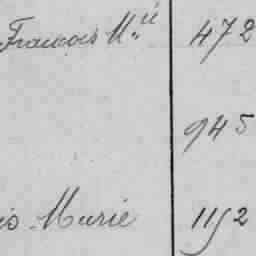 Francois M.ie 472
945
is Marie 1152